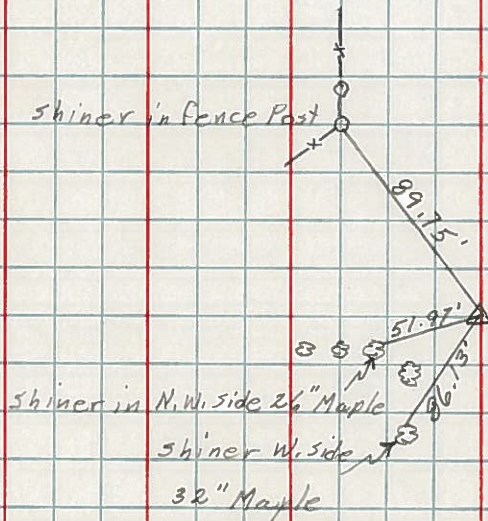 shiner in fence Post
89.75'
51.97'
86.13'
shiner in N.W. side 26" Maple
shiner W. side
32" Maple